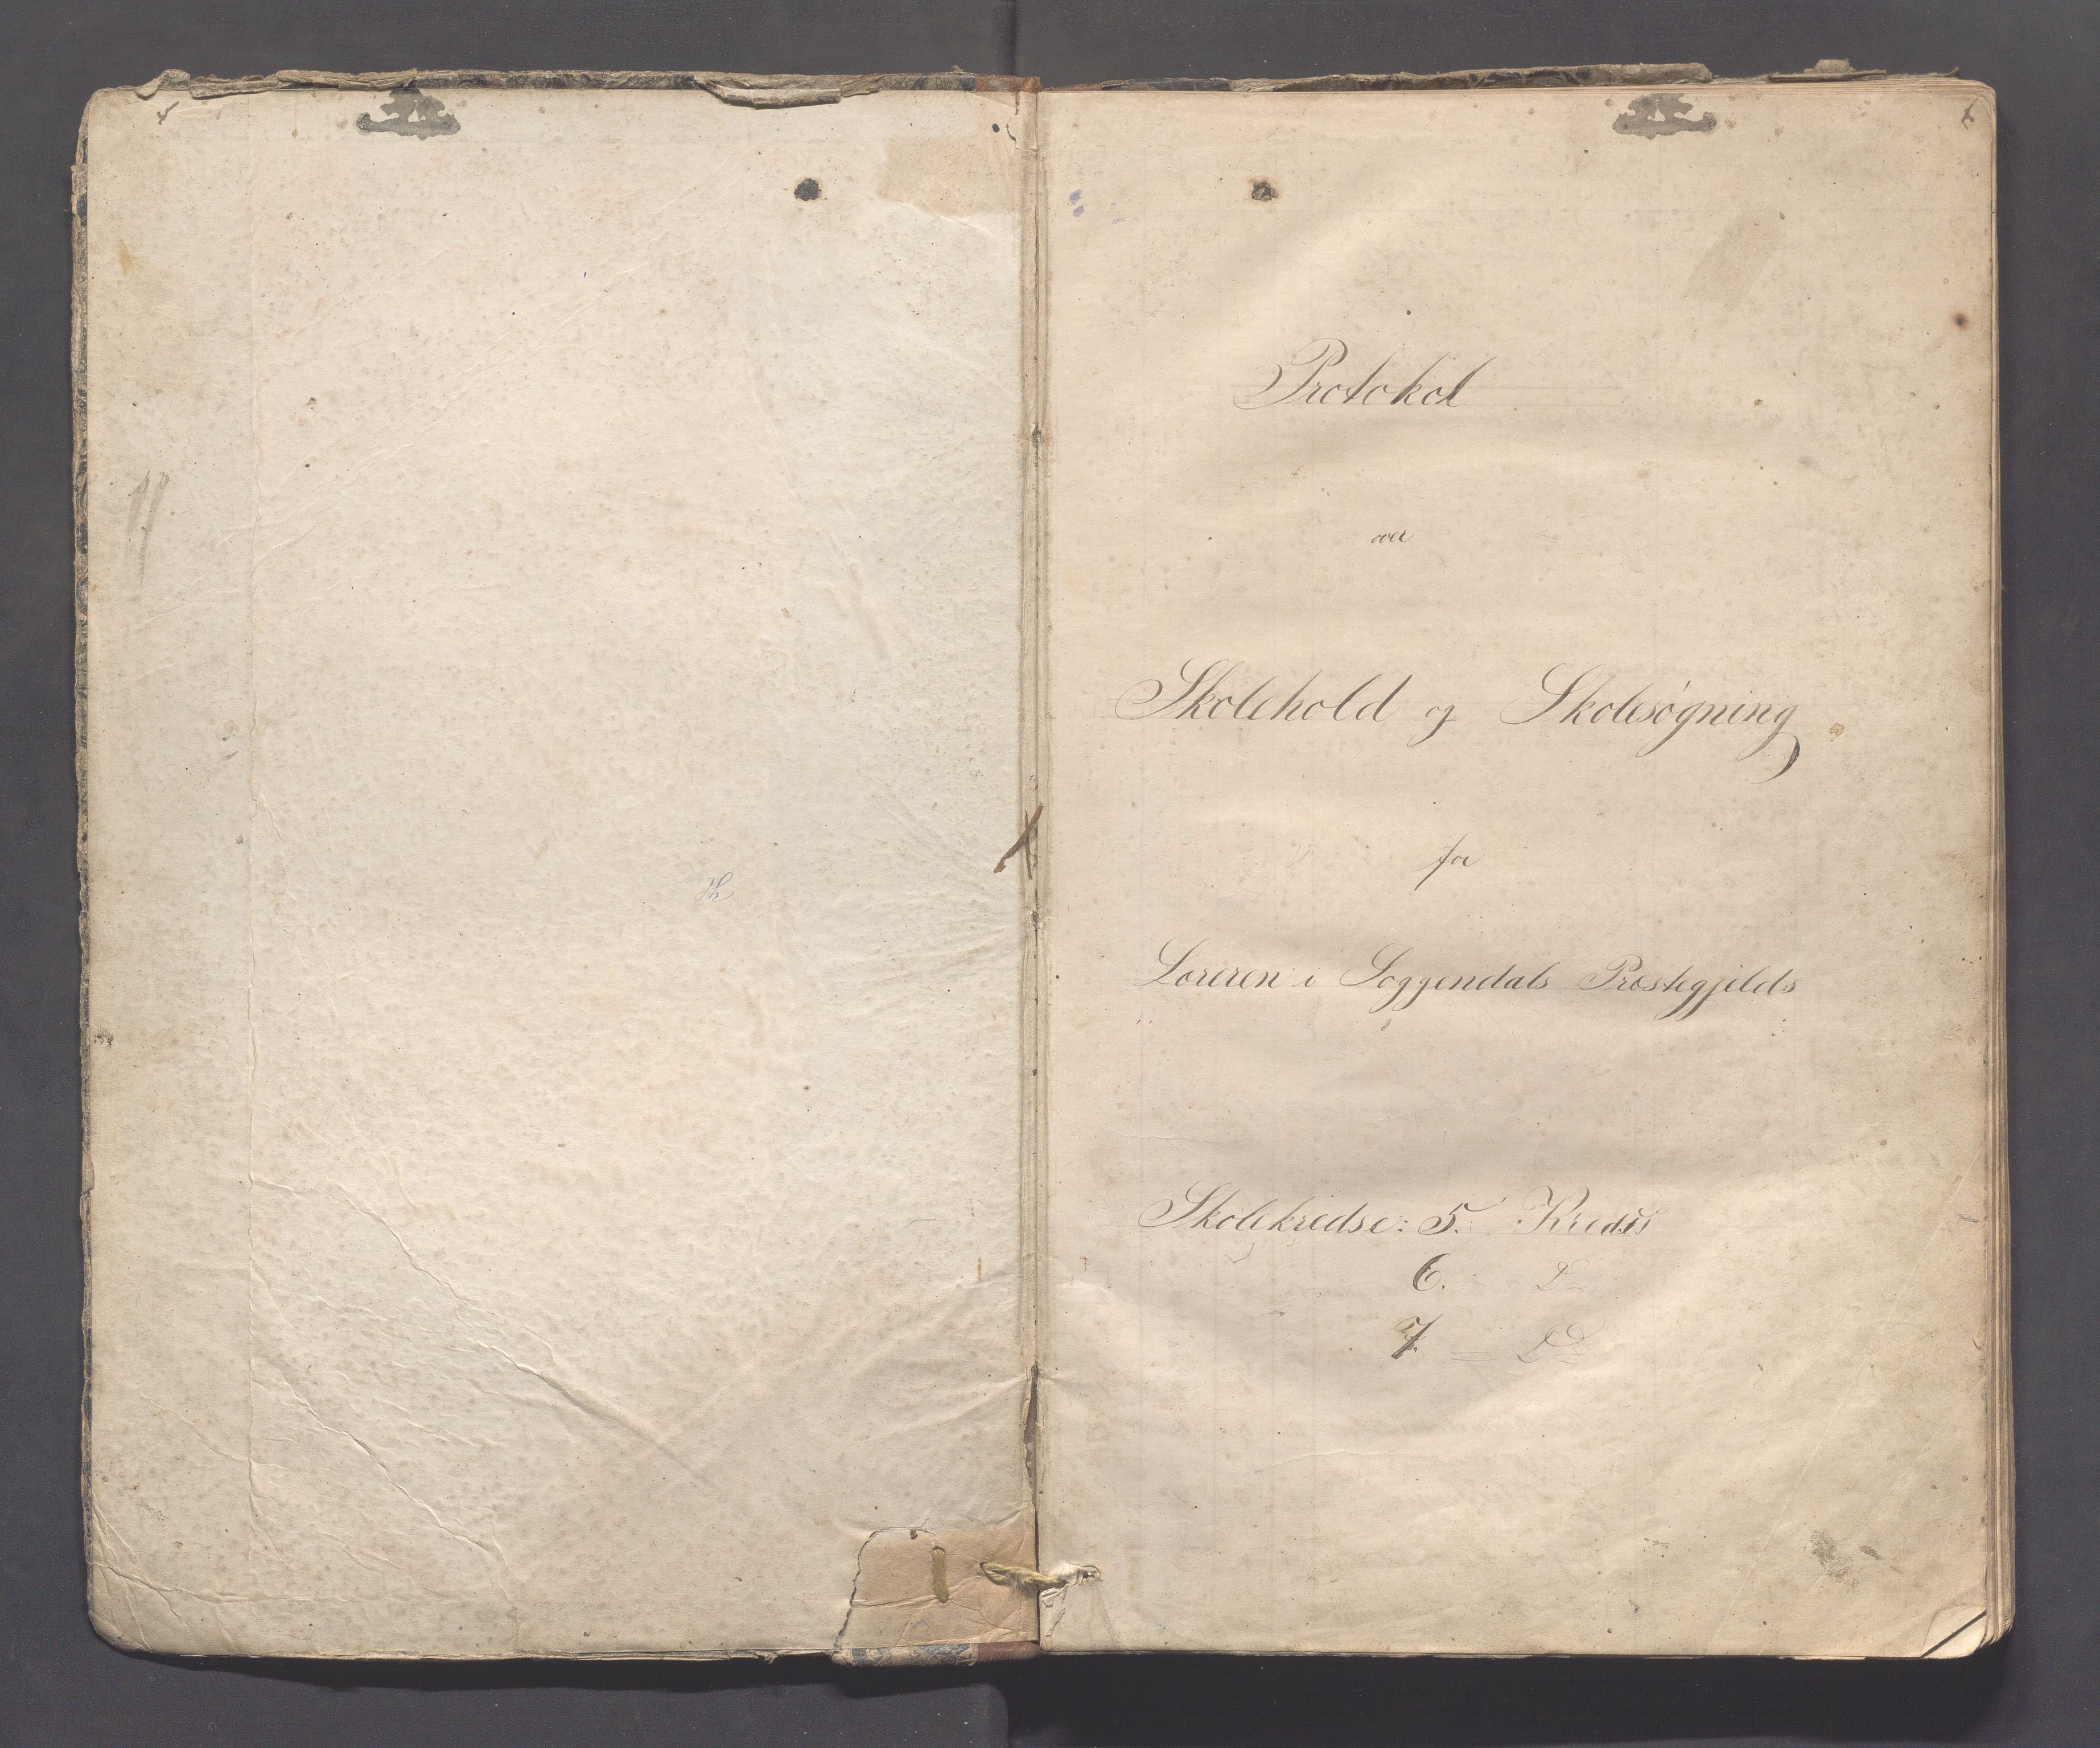 Protokol
over
Skolehold og Skolesøgning
for
Læreren i Soggendals Præstegjelds
Skolekredse: 5. Kreds
6. D–
7. – D–